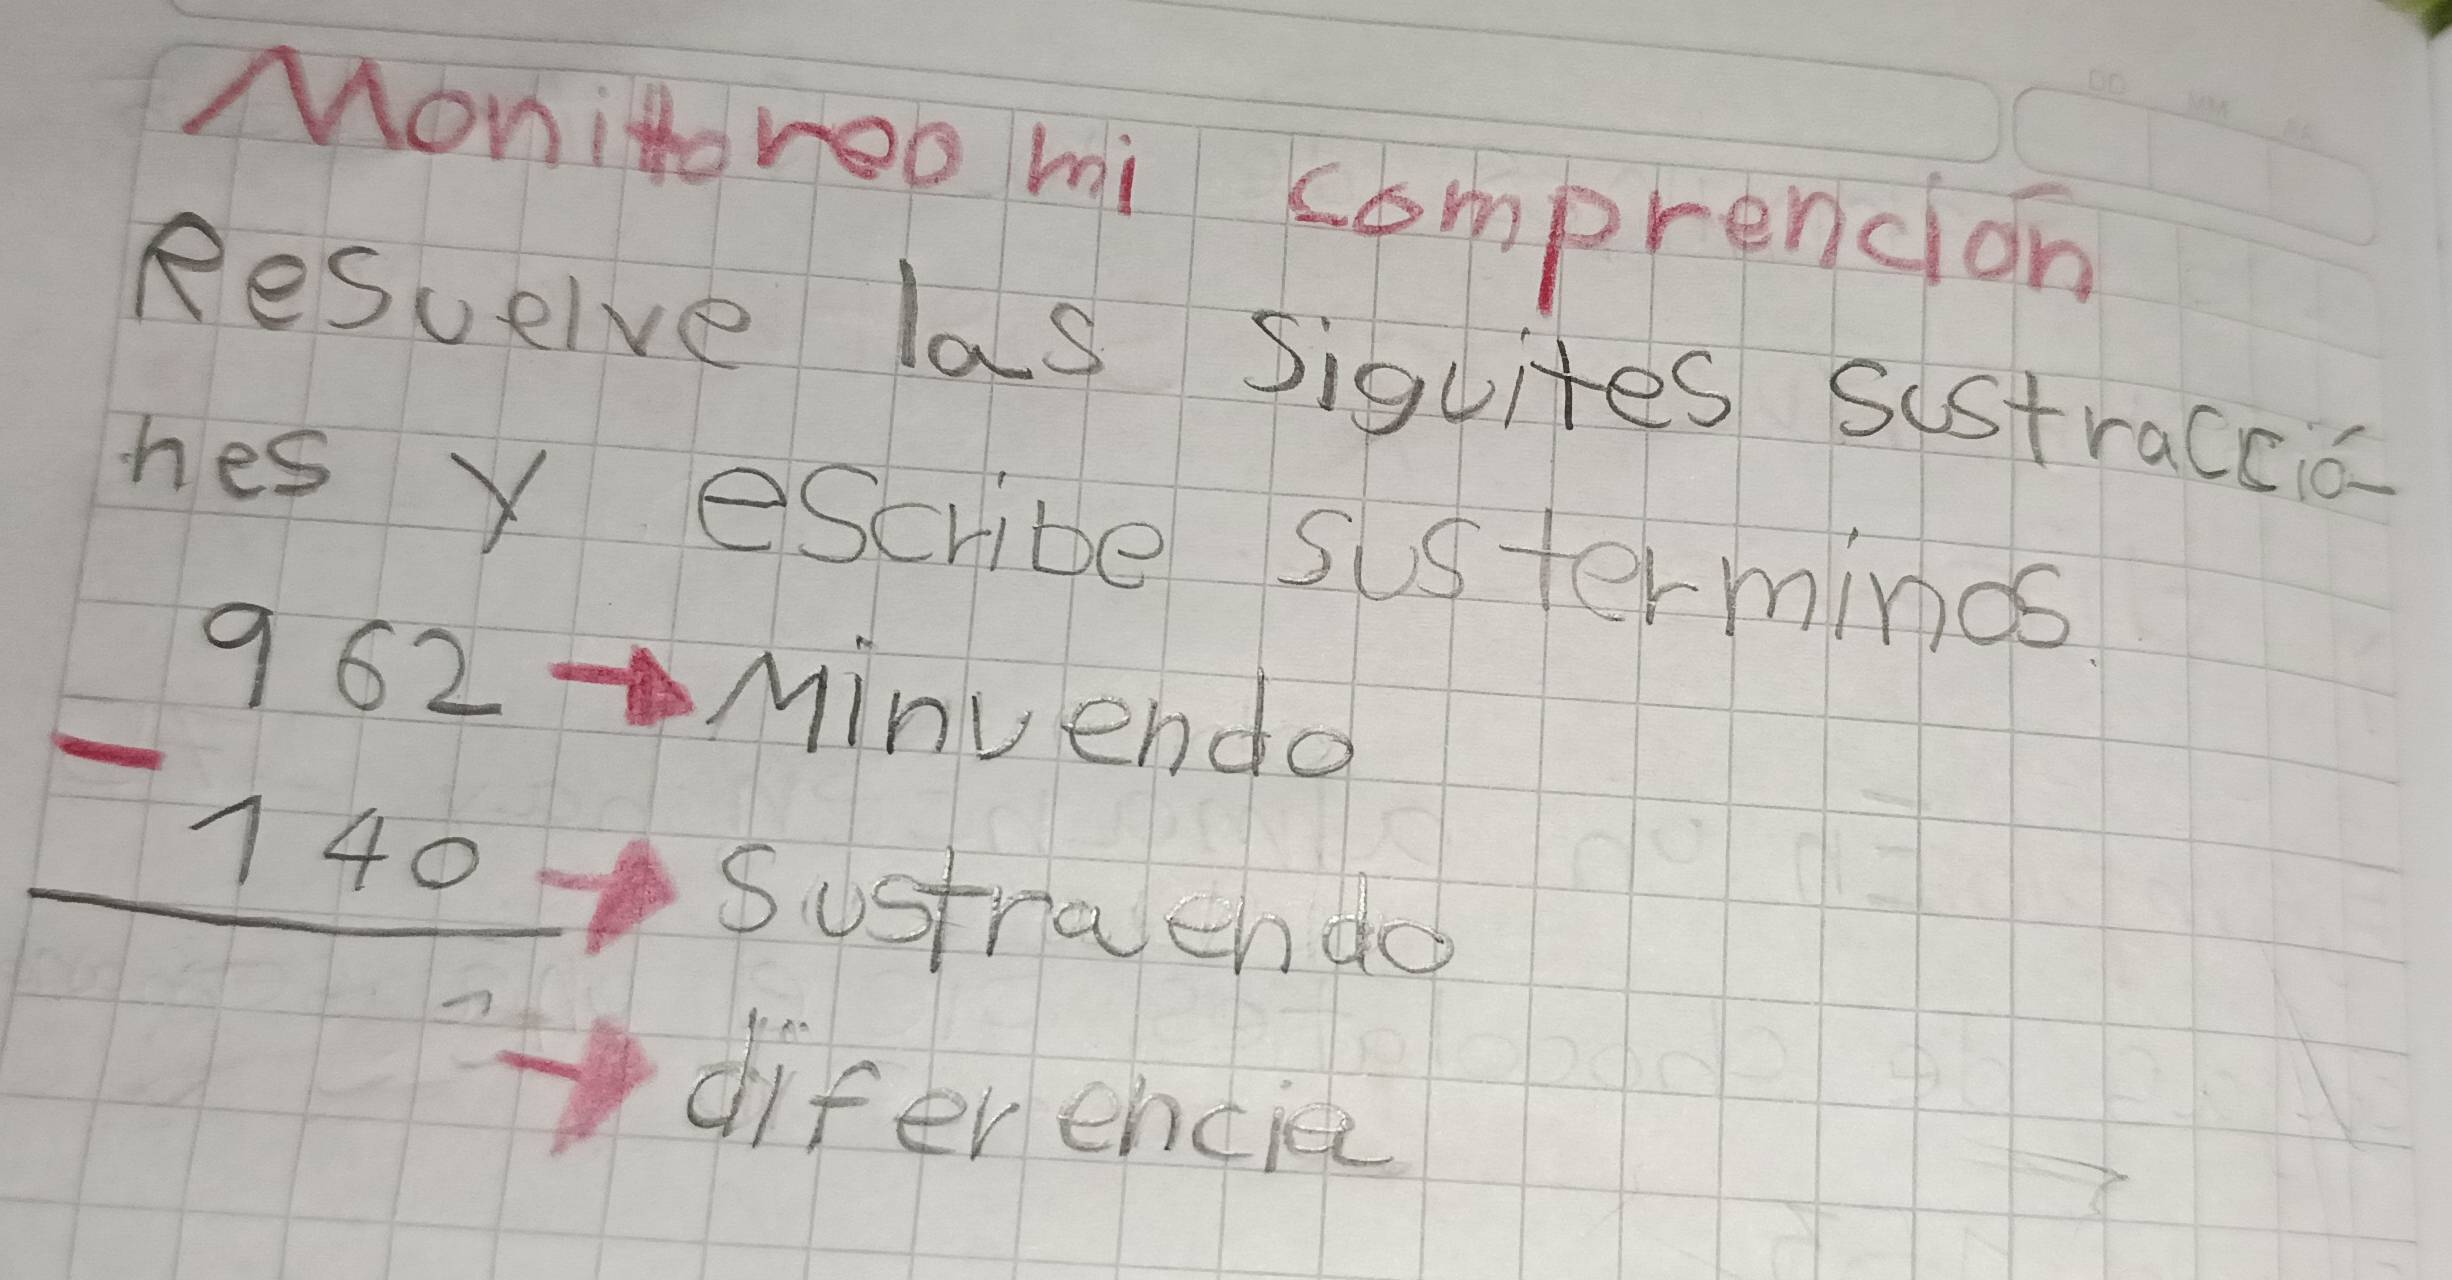 Monitoreo mi comprención
Resuelve las siguites sustracció-
nes y escribe sus terminos.
962 → Minuendo
-
140 → Sustraendo
→ diferencia